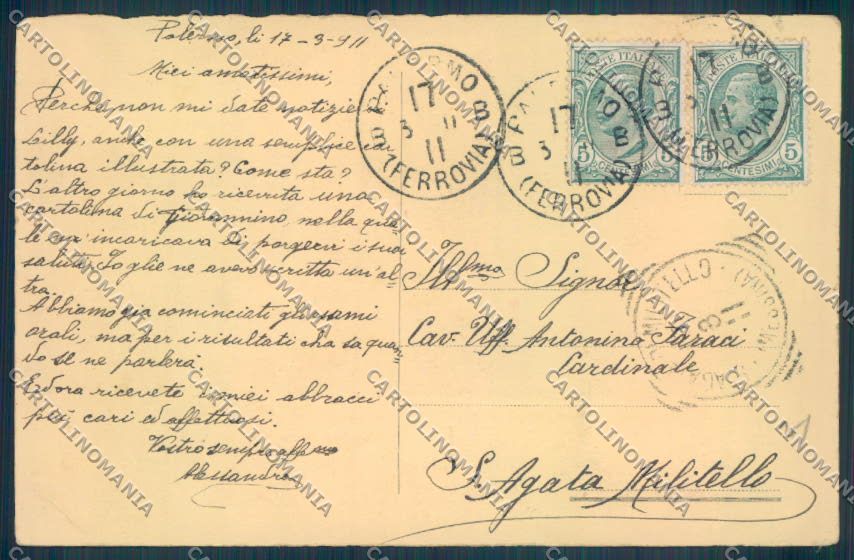 Palermo, li 17-3-911
Miei amatissimi,
Perché non mi date notizie
Lilly, anche con una semplice car
tolina illustrata? Come sta?
L'altro giorno ho ricevuta una
cartolina di Giovannino, nella qua
le m'incaricava di porgervi i suoi
saluti. Io glie ne avevo scritta un'al
tra.
Abbiamo già cominciati gli esami
orali, ma per i risultati chi sa quan
do se ne parlerà.
Ed ora ricevete i miei abbracci
più cari ed affettuosi.
Vostro sempre aff.mo
Alessandro
PALERMO
17
3 11
11
B B
(FERROVIA)
PALERMO
17
3
11
B B
(FERROVIA)
17
3
11
B
(FERROVIA)
POSTE ITALIANE
5 CENTESIMI 5
POSTE ITALIANE
5 CENTESIMI 5
Ill.mo Signor
Cav. Uff. Antonino Faraci
Cardinale
S. Agata Militello
MILITELLO
3
11
CARTOLINOMANIA